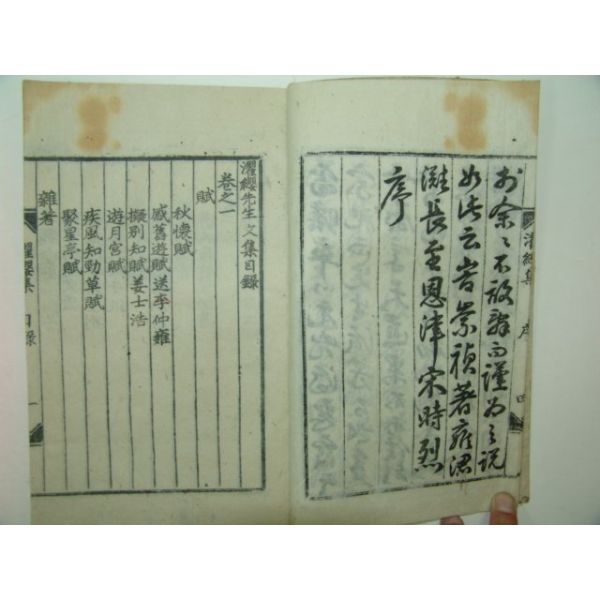 濯纓集 序 四
於余〻不敢辭而謹為之説
如此云峕崇禎著雍涒
灘長至恩津宋時烈
序
濯纓先生文集目錄
卷之一
賦
秋懷賦
感舊遊賦送李仲雍
擬別知賦姜士浩
遊月宮賦
疾風知勁草賦
聚星亭賦
雜著
濯纓集 目錄 一